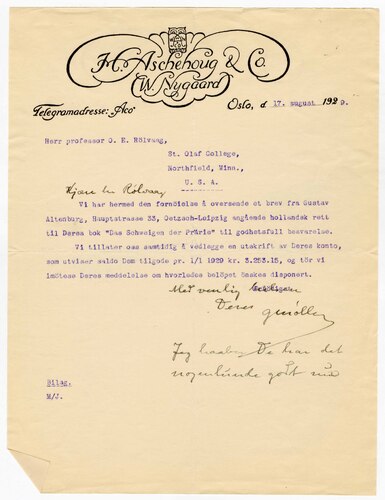 H. Aschehoug & Co.
W. Nygaard
Telegramadresse: "Aco"
Oslo, d 17. august 1929.
Herr professor O. E. Rölvaag,
St. Olaf College,
Northfield, Minn.,
U. S. A.
Kjære hr Rölvaag
Vi har hermed den fornöielse å oversende et brev fra Gustav
Altenburg, Hauptstrasse 33, Oetzsch-Leipzig angående hollandsk rett
til Deres bok "Das Schweigen der Prärie" til godhetsfull besvarelse.
Vi tillater oss samtidig å vedlegge en utskrift av Deres konto,
som utviser saldo Dem tilgode pr. 1/1 1929 kr. 3.253.15, og tör vi
imötese Deres meddelelse om hvorledes belöpet önskes disponert.
Med venlig
Deres
Jeg haaber De har det
nogenlunde godt nu
Bilag.
M/J.